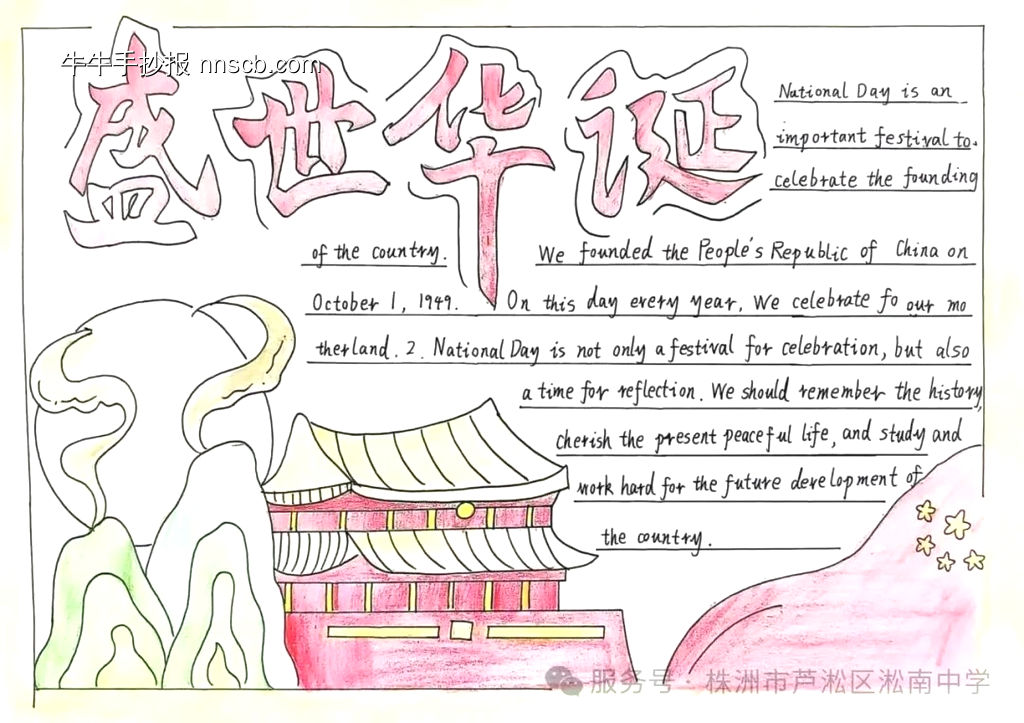 牛牛手抄报 nnscb.com
盛世华诞
National Day is an
important festival to.
celebrate the founding
of the country. We founded the People's Republic of China on
October 1, 1949. On this day every year, We celebrate fo our mo
therland. 2. National Day is not only a festival for celebration, but also
a time for reflection. We should remember the history,
cherish the present peaceful life, and study and
work hard for the future development of
the country.
服务号·株洲市芦淞区淞南中学